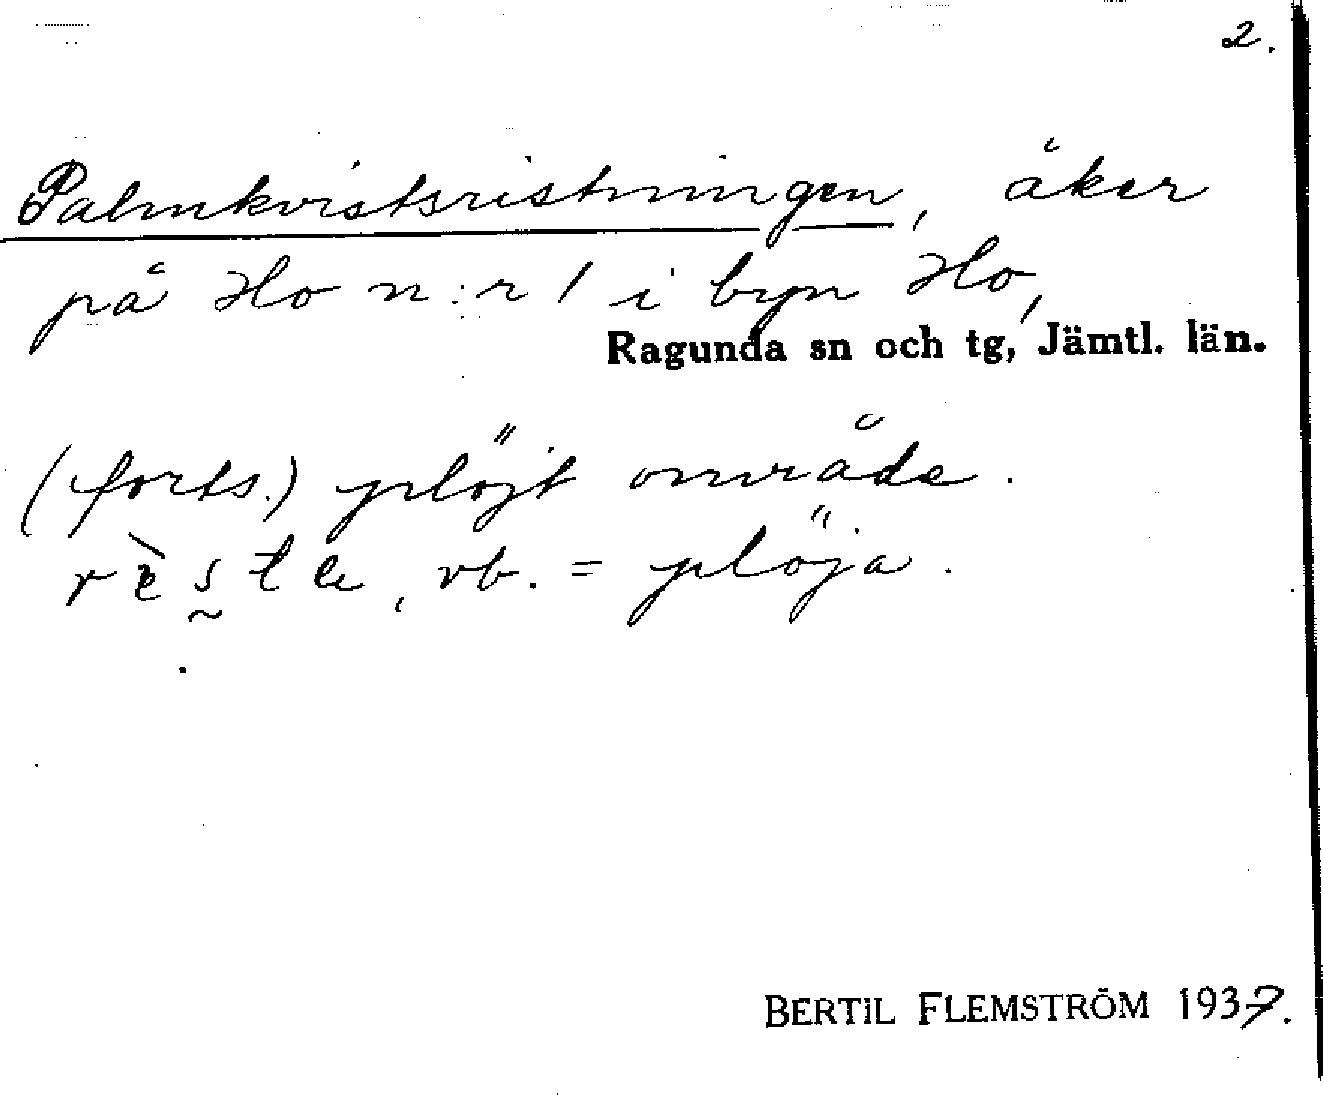 2.
Palmkvistsristningen, åker
på Ho n:r 1 i byn Ho,
Ragunda sn och tg, Jämtl. län.
(forts.) plöjt område.
vb. = plöja.
BERTIL FLEMSTRÖM 1937.